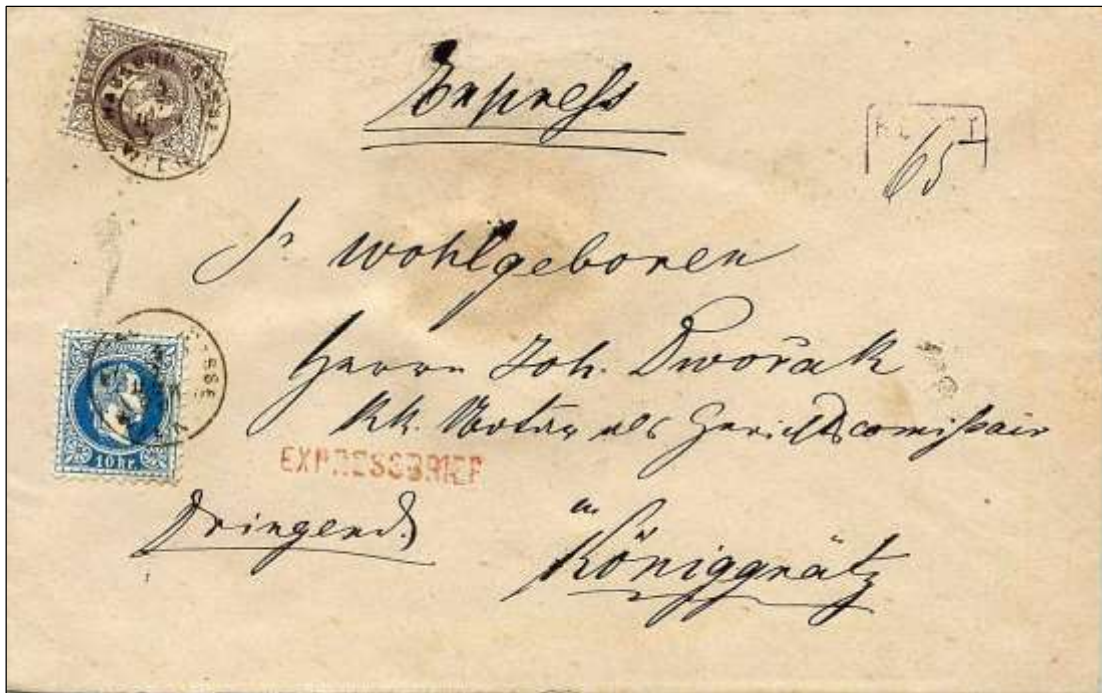 Express
65
Sr wohlgeboren
Herrn Joh. Dwořak
kk. Notar als Gerichtscomißair
EXPRESSBRIEF
10 kr.
Dringend
in
Königgrätz